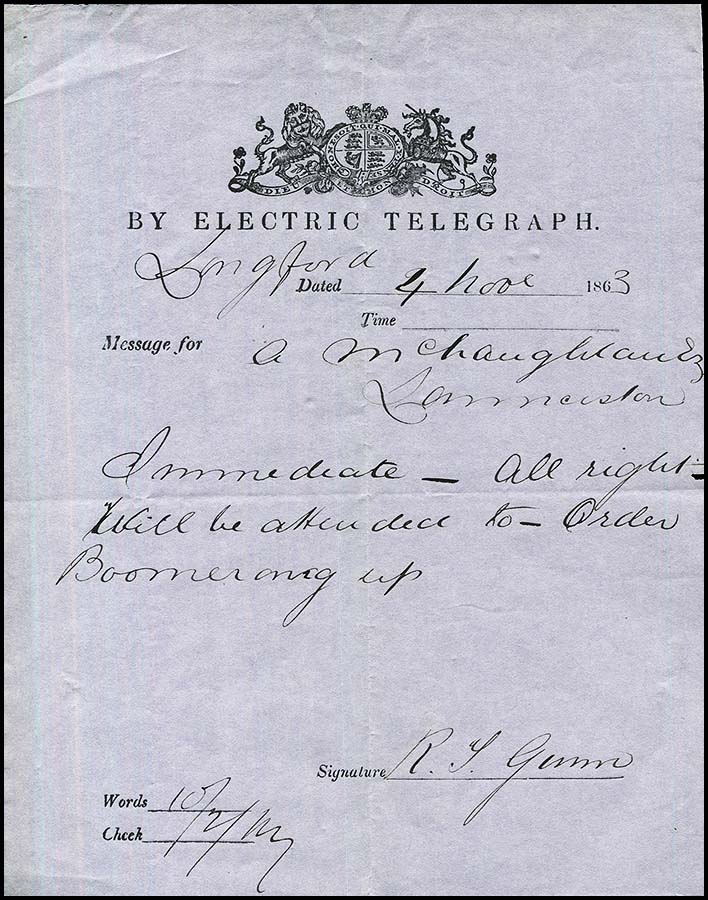 HONI SOIT QUI MAL Y PENSE
DIEU ET MON DROIT
BY ELECTRIC TELEGRAPH.
Longford
Dated 4 Nove 1863
Time
Message for A
Launceston
Immediate – All right –
Will be attended to – Order
Boomerang up
Signature R. Gunn
Words
Check